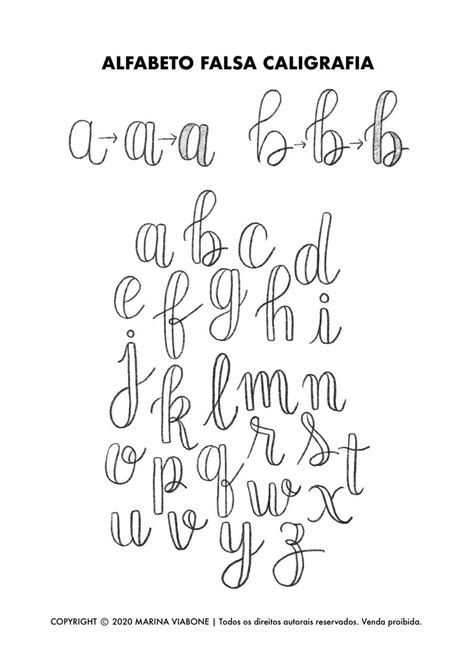 ALFABETO FALSA CALIGRAFIA
a→a→a b→b→b
a b c d
e f g h i
j k l m n
o p q r s t
u v w x
y z
COPYRIGHT © 2020 MARINA VIABONE | Todos os direitos autorais reservados. Venda proibida.